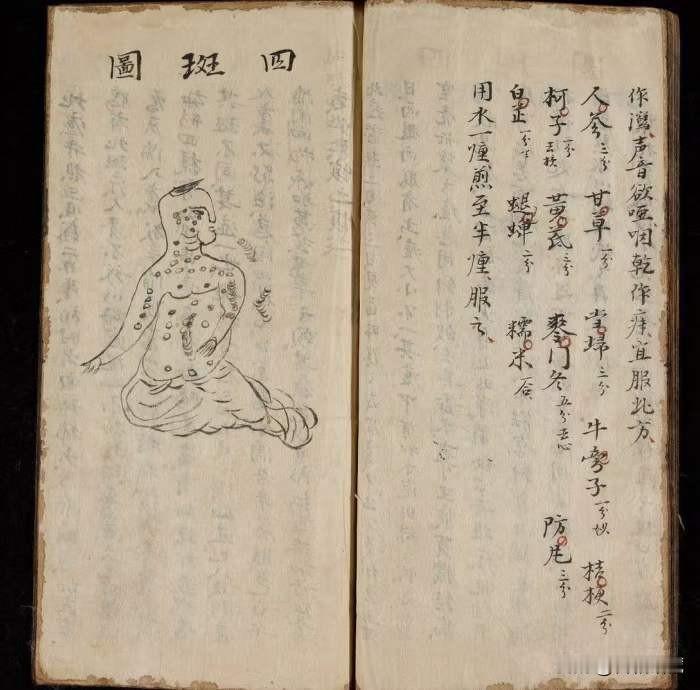 作瀉声音欲啞咽乾作痒宜服此方
人參三分 甘草一分 當歸三分 牛旁子一分炒 桔梗二分
柯子一分去核 黃芪三分 麥門冬五分去心 防风三分
白芷一分 蛻蟬二分 糯米一合
用水一鍾煎至半鍾服之
四斑圖